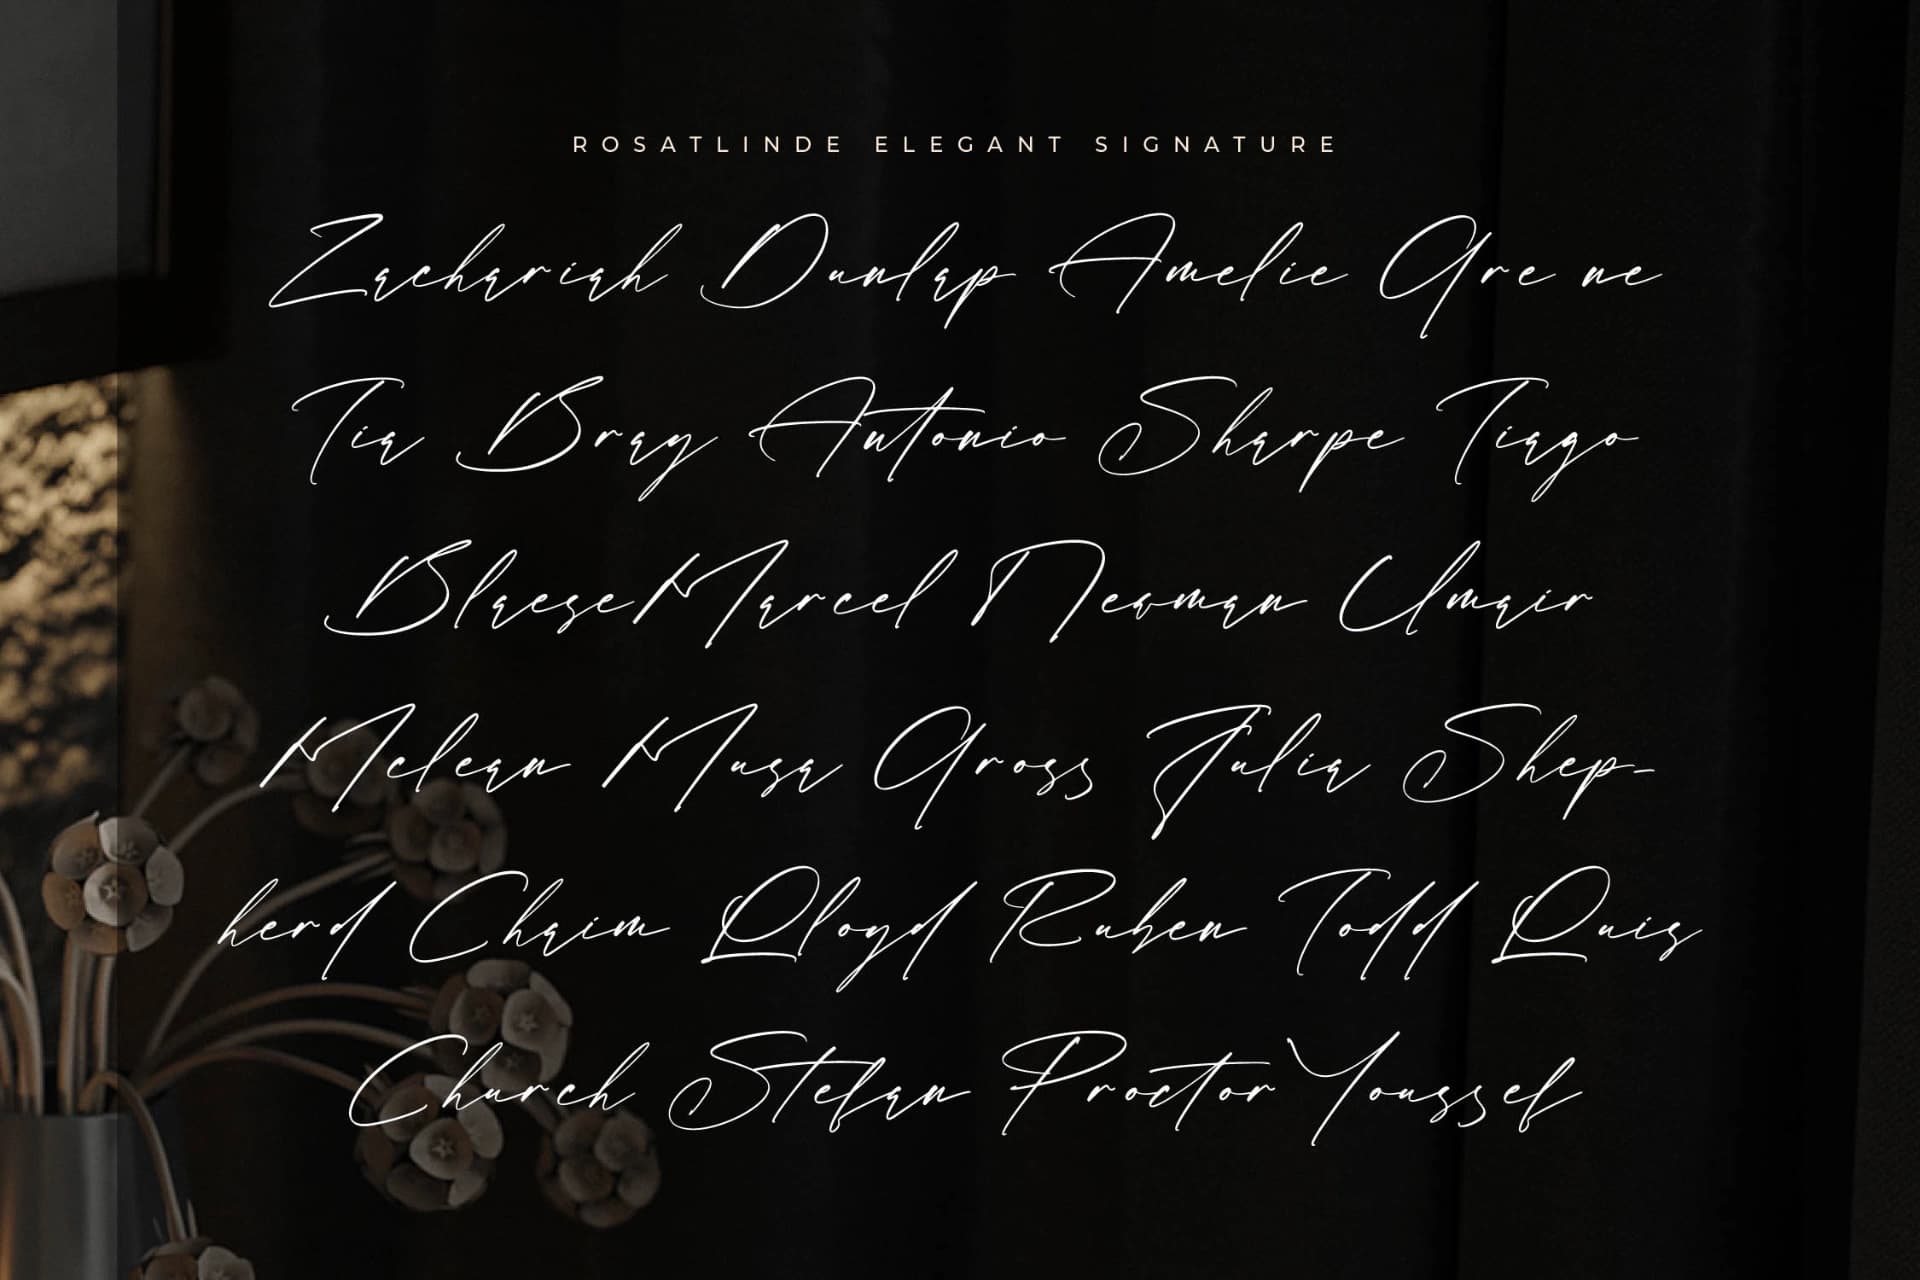 ROSATLINDE ELEGANT SIGNATURE
Zachariah Dunlap Amelie Gre ne
Tia Bray Antonio Sharpe Tiago
Blaese Marcel Newman Umair
Mclean Musa Gross Julia Shep-
herd Chaim Lloyd Ruben Todd Luis
Church Stefan Proctor Youssef